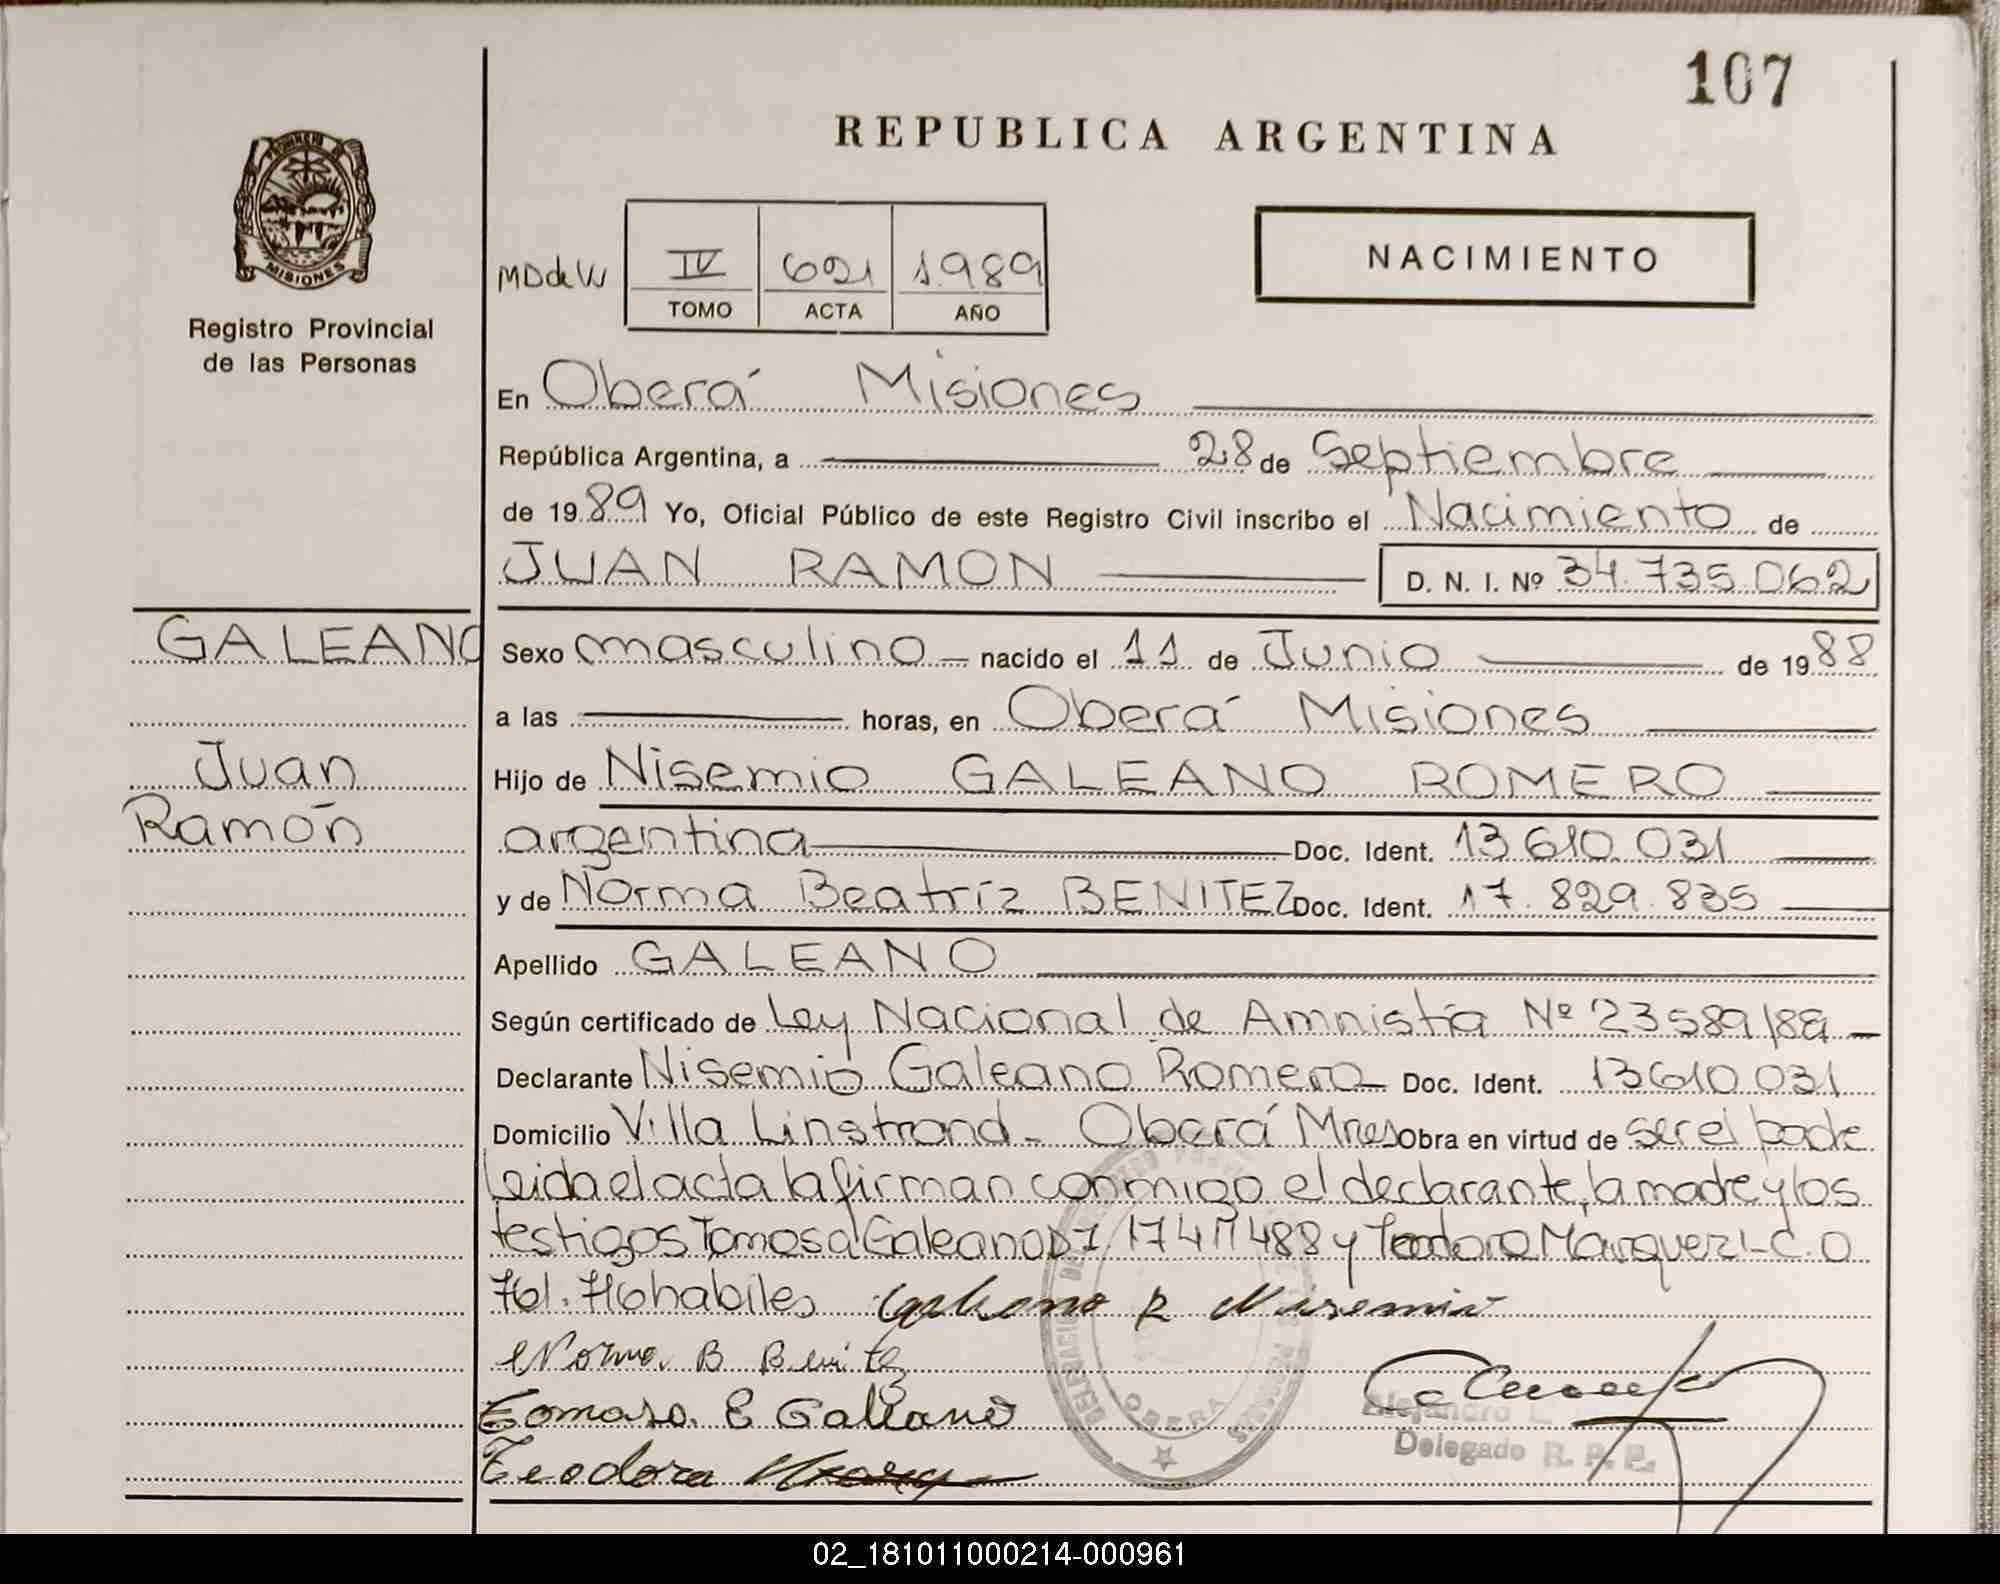 107
REPUBLICA ARGENTINA
MISIONES
Registro Provincial
de las Personas
IV 621 1.989
TOMO ACTA AÑO
NACIMIENTO
En Oberá Misiones
República Argentina, a 28 de Septiembre
de 1989 Yo, Oficial Público de este Registro Civil inscribo el Nacimiento de
JUAN RAMON D. N. I. Nº 34.735.062
GALEANO
Juan
Ramón
Sexo masculino nacido el 11 de Junio de 1988
a las horas, en Oberá Misiones
Hijo de Nisemio GALEANO ROMERO
argentina Doc. Ident. 13 610 031
y de Norma Beatríz BENITEZ Doc. Ident. 17.829.835
Apellido GALEANO
Según certificado de Ley Nacional de Amnistía Nº 23589/88
Declarante Nisemio Galeano Romero Doc. Ident. 13610031
Domicilio Villa Linstrand - Oberá Mnes Obra en virtud de ser el padre
Leida el acta la firman conmigo el declarante, la madre y los
testigos Tomasa Galeano DI 17411488 y Teodora Marquez L.C.O
761.716 habiles Galeano R Nisemio
Norma B Benitez
Tomasa E Galeano
Teodora
OBERA
Alejandro
Delegado R. P. P.
02_181011000214-000961